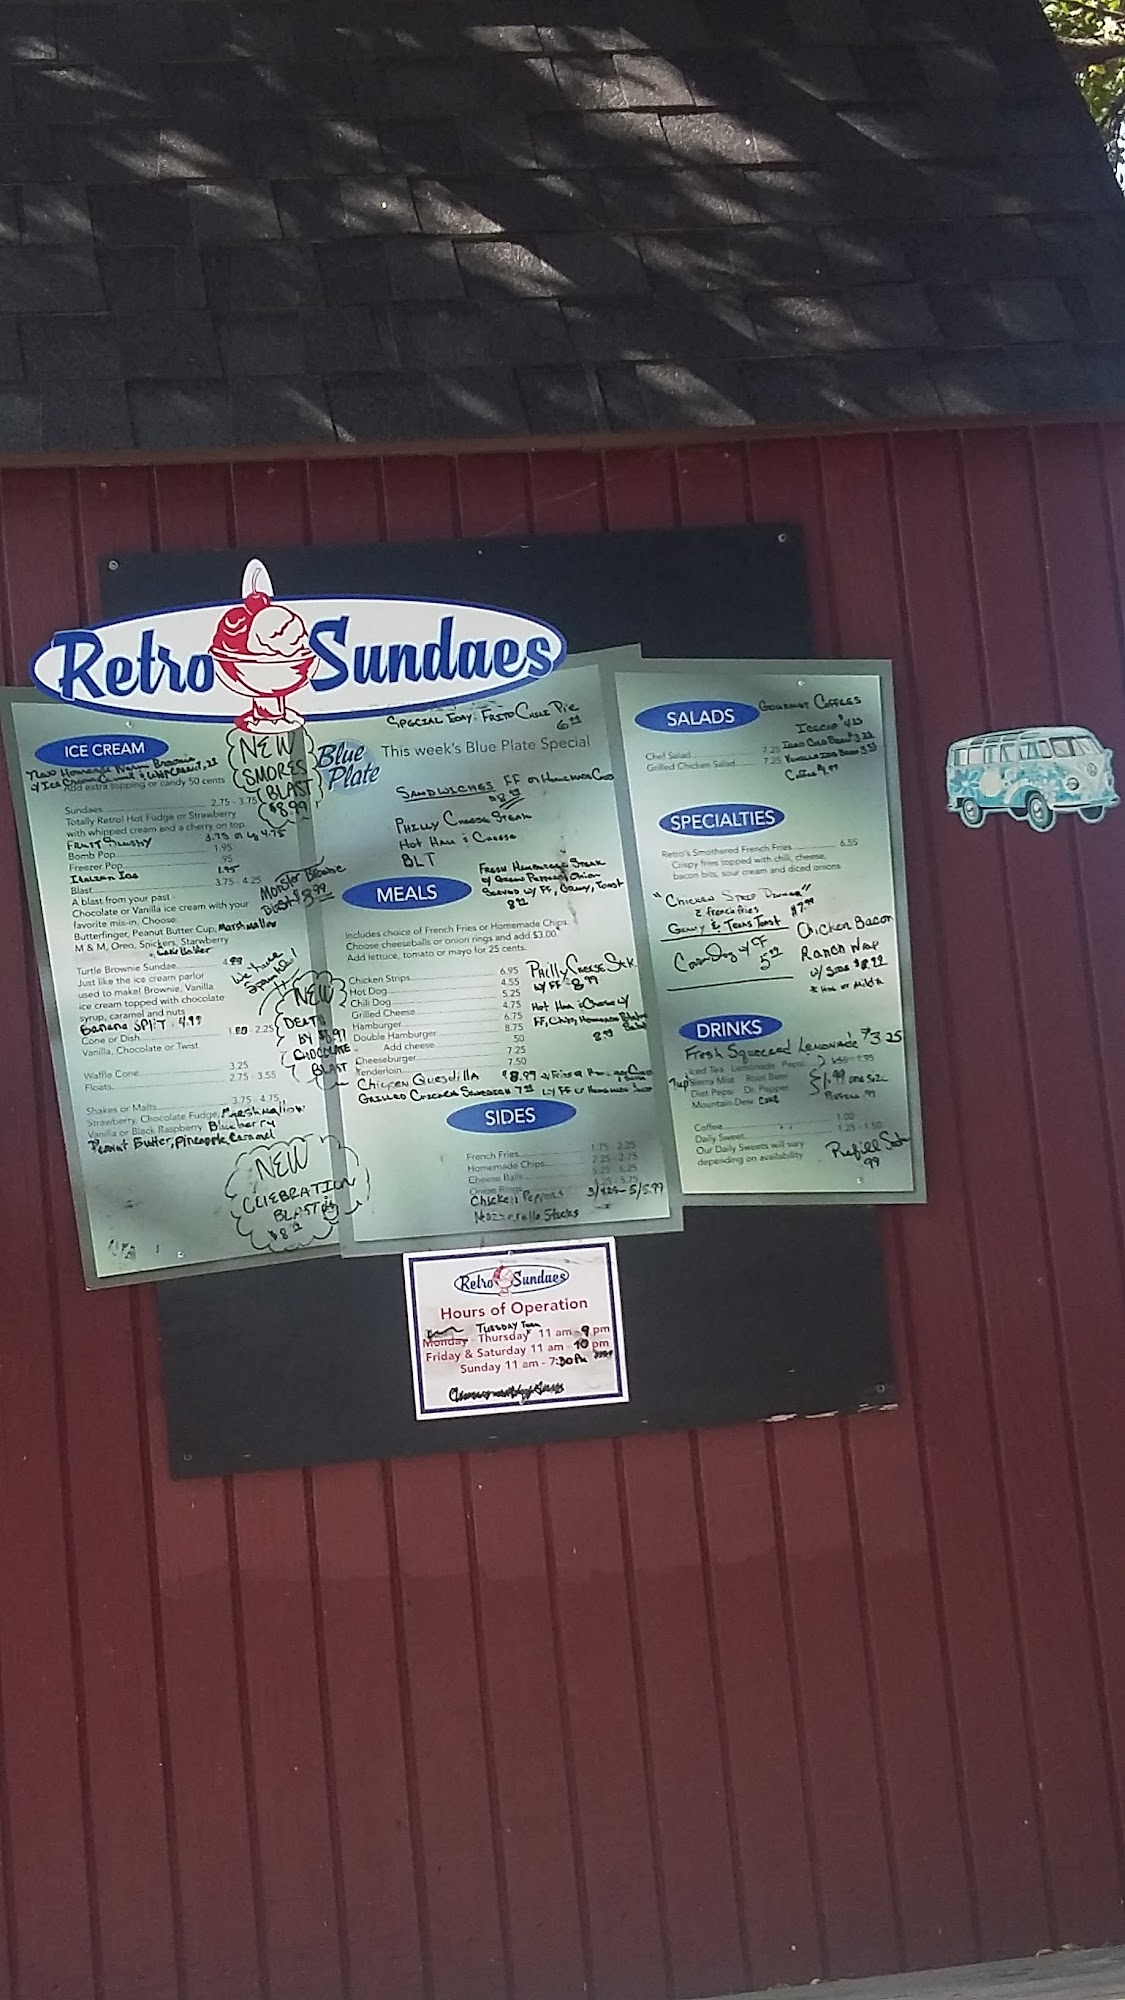 Retro Sundaes
ICE CREAM
New Homemade Warm Brownie
w/ Ice Cream
Add extra topping or candy 50 cents
Sundaes 2.75 - 3.75
Totally Retro! Hot Fudge or Strawberry
with whipped cream and a cherry on top.
Fruit Slushy 3.75 or Lg 4.75
Bomb Pop 1.95
Freezer Pop .95
Italian Ice 1.95
Blast 3.75 - 4.25
A blast from your past -
Chocolate or Vanilla ice cream with your
favorite mix-in. Choose:
Butterfinger, Peanut Butter Cup, Marshmallow
M & M, Oreo, Snickers, Strawberry
Cake Batter
Turtle Brownie Sundae 4.99
Just like the ice cream parlor
used to make! Brownie, Vanilla
ice cream topped with chocolate
syrup, caramel and nuts
Banana SPLIT - 4.99
Cone or Dish 2.25
Vanilla, Chocolate or Twist
Waffle Cone 3.25
Floats 2.75 - 3.55
Shakes or Malts 3.75 - 4.75
Strawberry, Chocolate Fudge, Marshmallow
Vanilla or Black Raspberry Blueberry
Peanut Butter, Pineapple, Caramel
NEW
SMORES
BLAST
$8.99
Monster Brownie
Blast $8.99
We have
Sprinkles!
NEW
DEATH
BY $8.99
CHOCOLATE
BLAST
NEW
CELEBRATION
BLAST
Special Today: Frito Chili Pie
Blue
Plate
This week's Blue Plate Special
Sandwiches FF or Homemade Chips
Philly Cheese Steak
Hot Ham & Cheese
BLT
Fresh Hamburger Steak
w/ Green Peppers, Onion
Served w/ FF, Gravy, Toast
MEALS
Includes choice of French Fries or Homemade Chips.
Choose cheeseballs or onion rings and add $3.00.
Add lettuce, tomato or mayo for 25 cents.
Chicken Strips 6.95
Hot Dog 4.55
Chili Dog 5.25
Grilled Cheese 4.75
Hamburger 6.75
Double Hamburger 8.75
Add cheese 50
Cheeseburger 7.25
Tenderloin 7.50
Chicken Quesdilla $8.99
Grilled Chicken Sandwich
Philly Cheese Stk
w/ FF - 8.99
Hot Ham & Cheese w/
FF, Chips, Homemade Potato
Salad
8.99
SIDES
French Fries 1.75 - 2.25
Homemade Chips 2.25 - 2.75
Cheese Balls 5.25 - 6.25
Onion Rings 5.75
Chicken Poppers 3/4.25 - 5/5.99
Mozzarella Sticks
SALADS
Gourmet Coffees
Chef Salad 7.25
Grilled Chicken Salad 7.25
SPECIALTIES
Retro's Smothered French Fries 6.55
Crispy fries topped with chili, cheese,
bacon bits, sour cream and diced onions
"Chicken Strip Dinner"
& french fries $7.99
Gravy & Texas Toast
Corn Dog w/ FF
Chicken Bacon
Ranch Wrap
* Hot or Mild *
DRINKS
Fresh Squeezed Lemonade $3.25
Iced Tea Lemonade Pepsi
7up Sierra Mist Root Beer
Diet Pepsi Dr. Pepper
Mountain Dew Coke
$1.99 one size
Refills .99
Coffee 1.00
Daily Sweet 1.25 - 1.50
Our Daily Sweets will vary
depending on availability
Refill Soda
99
Retro Sundaes
Hours of Operation
Tuesday
Monday Thursday 11 am - 9 pm
Friday & Saturday 11 am 10 pm
Sunday 11 am - 7:30 Pm